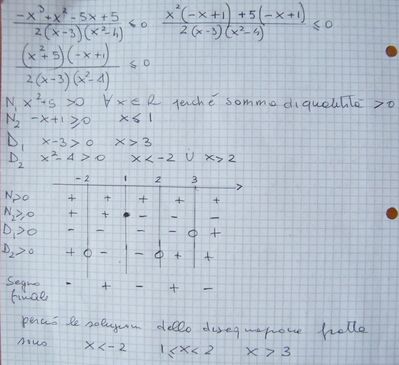 -x³+x²-5x+5 / 2(x-3)(x²-4) ≤0    x²(-x+1)+5(-x+1) / 2(x-3)(x²-4) ≤0
(x²+5)(-x+1) / 2(x-3)(x²-4) ≤0
N₁ x²+5 >0 ∀x∈R perché somma di quantità >0
N₂ -x+1≥0 x≤1
D₁ x-3>0 x>3
D₂ x²-4>0 x<-2 ∪ x>2
-2 1 2 3
N₁>0 + + + + +
N₂≥0 + + - - -
D₁>0 - - - - +
D₂>0 + - - + +
Segno - + - + -
finale
perciò le soluzioni della disequazione fratta
sono x<-2 1≤x<2 x>3